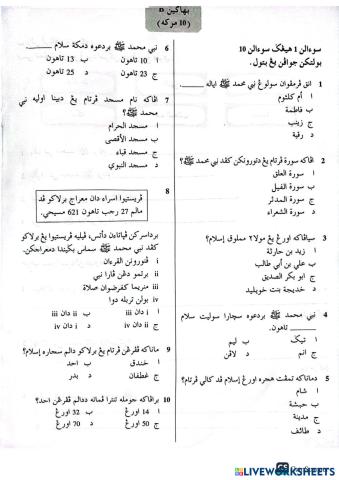 بهاݢين B
(10 مركه)
سوءالن 1 هيڠݢ سوءالن 10
بولتكن جواڤن يڠ بتول.
1 انق ڤرمڤوان سولوڠ نبي محمد ﷺ اياله ____.
ا أم كلثوم
ب فاطمة
ج زينب
د رقية
2 اڤاكه سورة ڤرتام يڠ دتورونكن كڤد نبي محمد ﷺ؟
ا سورة العلق
ب سورة الفيل
ج سورة المدثر
د سورة الشعراء
3 سياڤاكه اورڠ يڠ مولا٢ مملوق إسلام؟
ا زيد بن حارثة
ب علي بن أبي طالب
ج ابو بكر الصديق
د خديجة بنت خويليد
4 نبي محمد ﷺ بردعوه سچارا سوليت سلام
____ تاهون.
ا تيݢ ب ليم
ج انم د لاڤن
5 دماناكه تمڤت هجره اورڠ إسلام ڤد كالي ڤرتام؟
ا شام
ب حبشة
ج مدينة
د طائف
6 نبي محمد ﷺ بردعوه دمكة سلام ____
ا 10 تاهون ب 13 تاهون
ج 23 تاهون د 25 تاهون
7 اڤاكه نام مسجد ڤرتام يڠ دبينا اوليه نبي
محمد ﷺ؟
ا مسجد الحرام
ب مسجد الأقصى
ج مسجد قباء
د مسجد النبوي
8
ڤريستيوا اسراء دان معراج برلاكو ڤد
مالم 27 رجب تاهون 621 مسيحي.
برداسركن ڤپاتاءن دأتس، ڤيليه ڤريستيوا يڠ برلاكو
كڤد نبي محمد ﷺ سماس بݢيندا دمعراجكن.
i ڤنورونن القرءان
ii برتمو دڠن ڤارا نبي
iii منريما كفرضوان صلاة
iv بولن تربله دوا
ا i دان ii ب ii دان iii
ج ii دان iv د i دان iv
9 ماناكه ڤڤرڠن ڤرتام يڠ برلاكو دالم سجاره إسلام؟
ا خندق ب احد
ج غطفان د بدر
10 براڤاكه جومله تنترا ڤمانه ددالم ڤڤرڠن احد؟
ا 14 اورڠ ب 32 اورڠ
ج 50 اورڠ د 70 اورڠ
LIVEWORKSHEETS